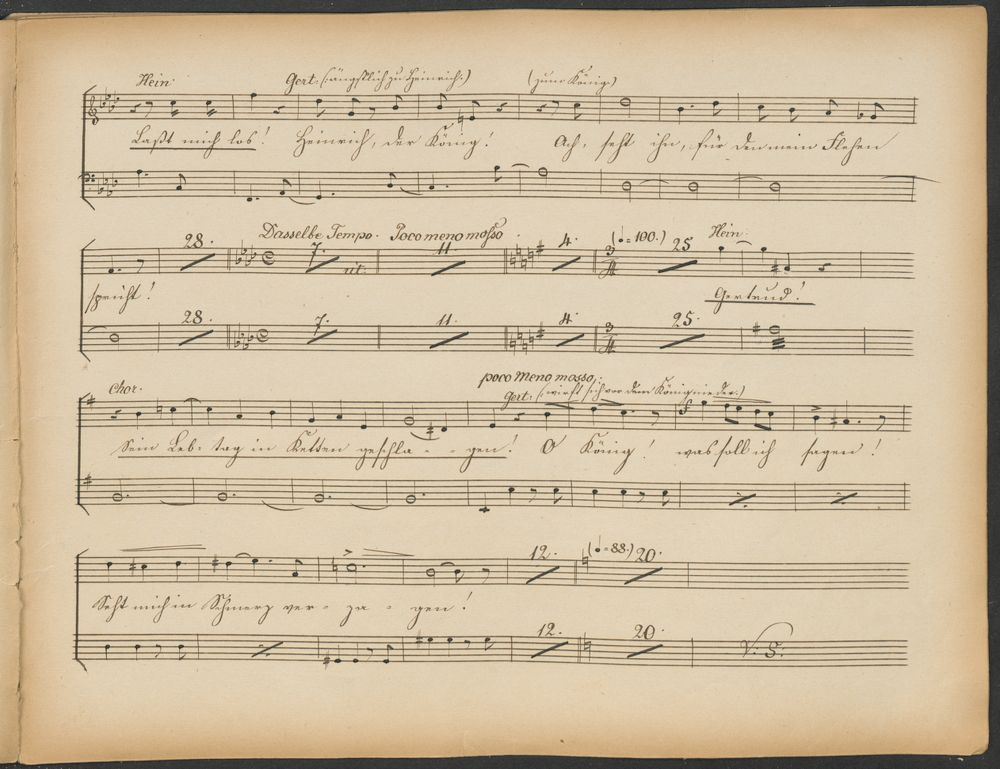 Hein· Gert: (:ängstlich zu Heinrich:) (zum König:)
Laßt mich los! Heinrich, der König! Ach, seht ihn, für den mein Flehen
28. Dasselbe Tempo. 7. Poco meno mosso. 11. 4. (♩=100.) 3/4 25 Hein·
rit:
spricht! Gertrud!
28. 7. 11. 4. 3/4 25.
Chor. poco meno mosso.
Gert: (:wirft sich vor dem König nieder:)
f
Sein Leb- tag in Ketten geschla - - gen! O König! was soll ich sagen!
12. (♩=88.) 20.
Seht mich in Schmerz ver- za - gen!
12. 20. V: S: